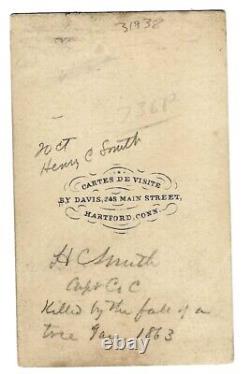 31938
736P
20 Ct
Henry C Smith
CARTES DE VISITE
BY DAVIS, 248 MAIN STREET,
HARTFORD, CONN.
H C Smith
Capt Co C
Killed by the fall of a
tree Jan 1863